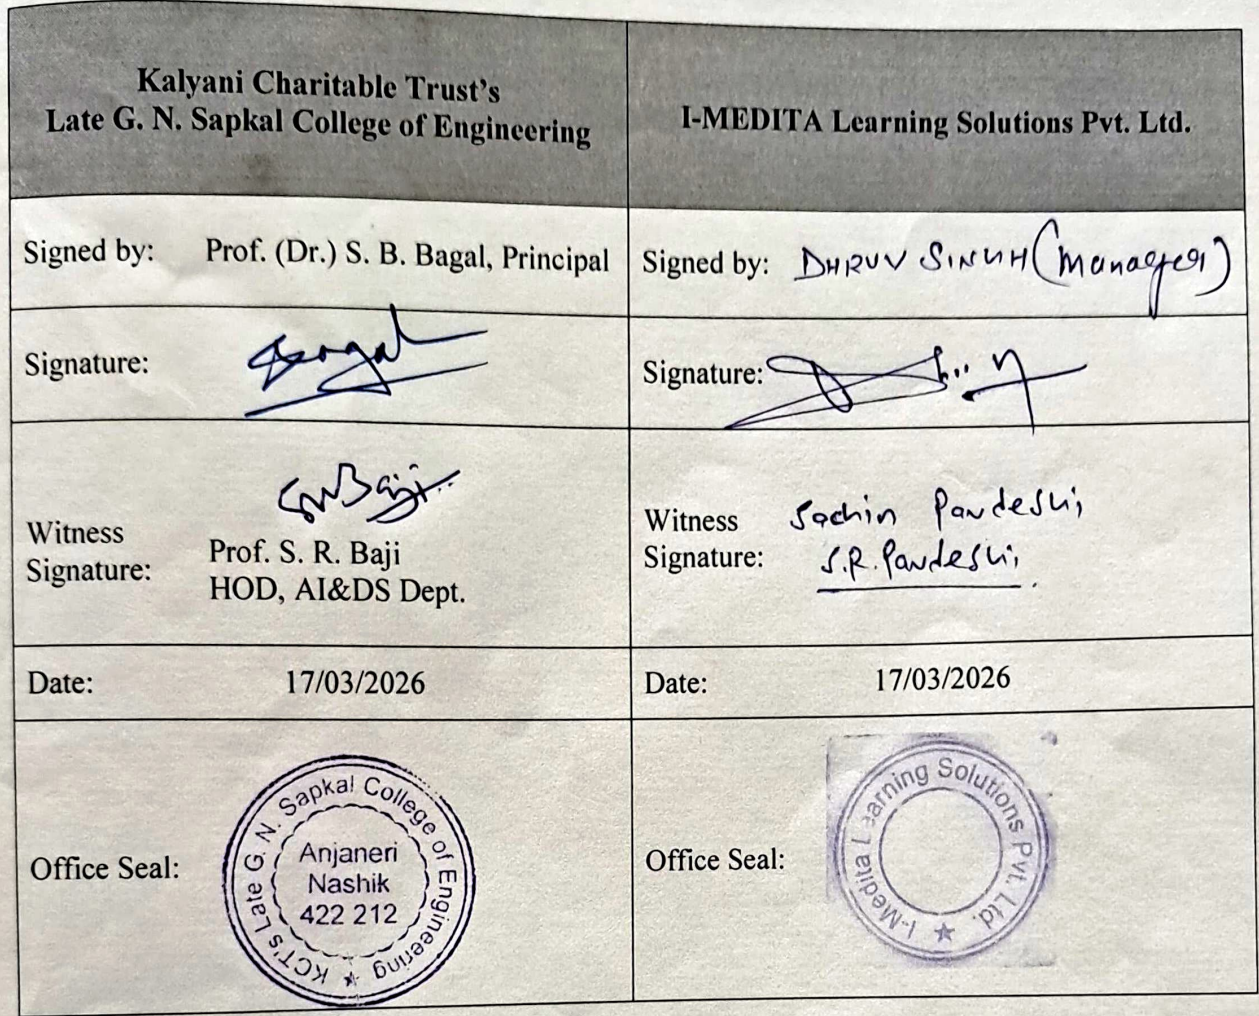 Kalyani Charitable Trust's
Late G. N. Sapkal College of Engineering
I-MEDITA Learning Solutions Pvt. Ltd.
Signed by: Prof. (Dr.) S. B. Bagal, Principal
Signed by: DHRUV SINGH (Manager)
Signature: Bagal
Signature:
Witness
Signature:
SRBaji
Prof. S. R. Baji
HOD, AI&DS Dept.
Witness
Signature:
Sachin Pardeshi
S.R.Pardeshi
Date: 17/03/2026
Date: 17/03/2026
Office Seal:
KCT's Late G. N. Sapkal College of Engineering
Anjaneri
Nashik
422 212
Office Seal:
I-Medita Learning Solutions Pvt. Ltd.